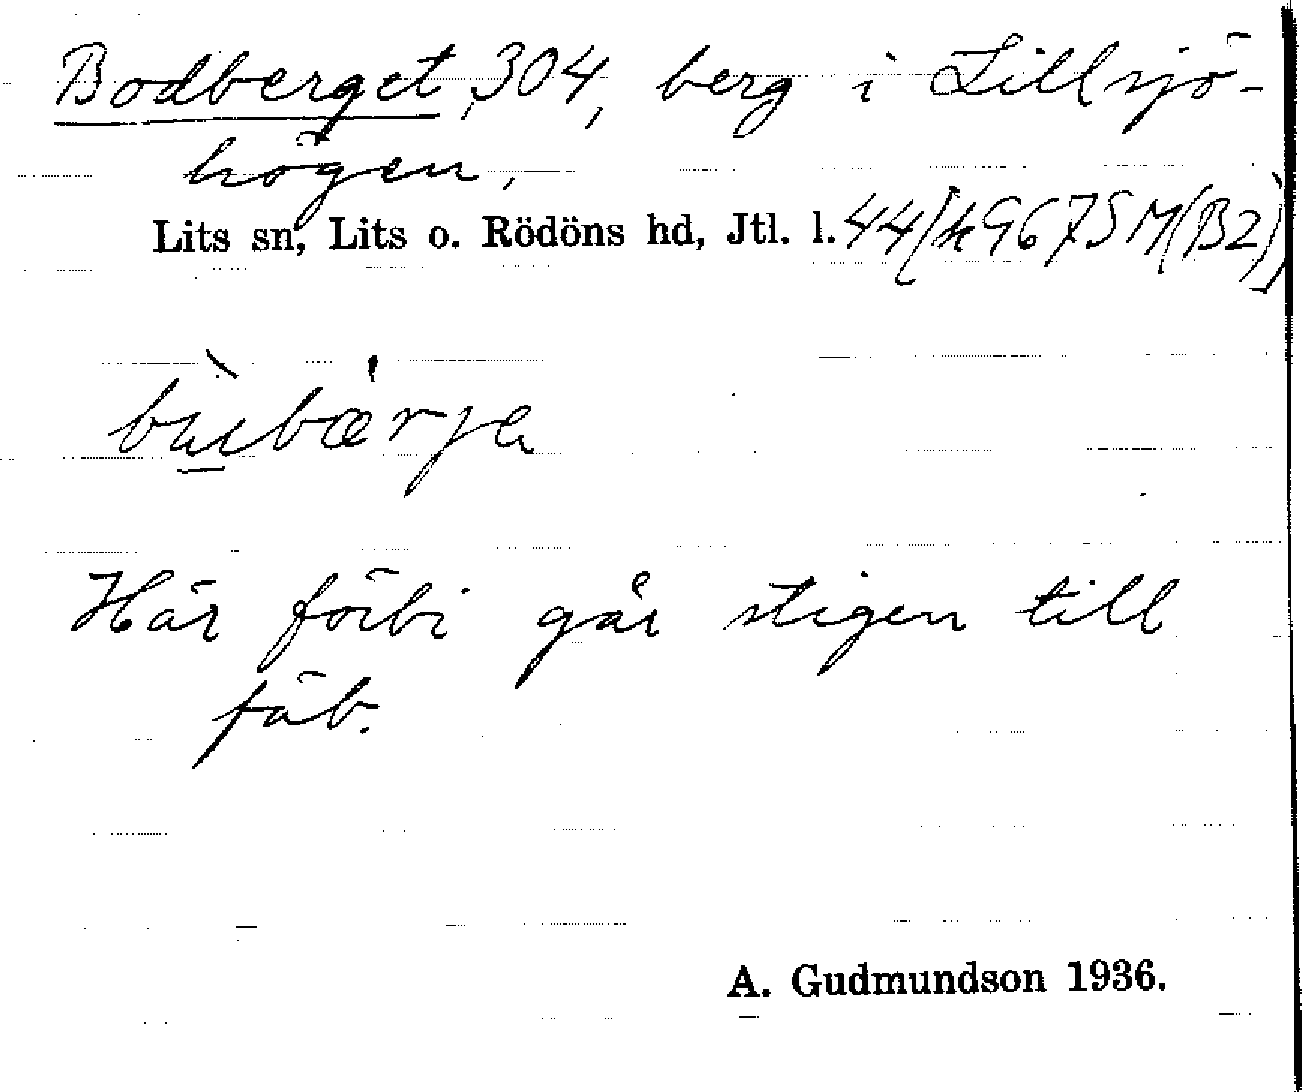 Bodberget, 304, berg i Lillsjö-
högen,
Lits sn, Lits o. Rödöns hd, Jtl. l. 44/[k967SM(B2)]
bu̲bærja
Här förbi går stigen till
fäb.
A. Gudmundson 1936.